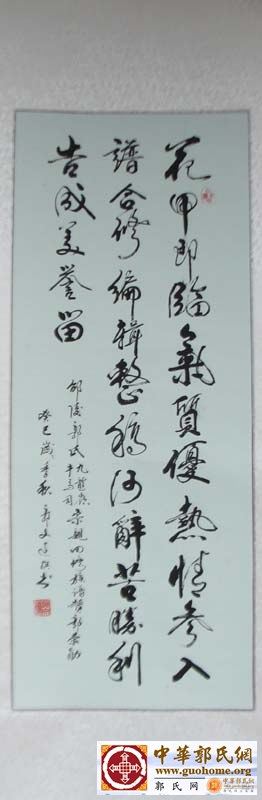 花甲即臨氣質優熱情參入
譜合修編輯整稿何辭苦勝利
告成美譽留
邵陵郭氏九龍宗親四修族譜贊郭
癸巳歲季秋郭文書
中華郭氏網
www.guohome.org
郭氏网